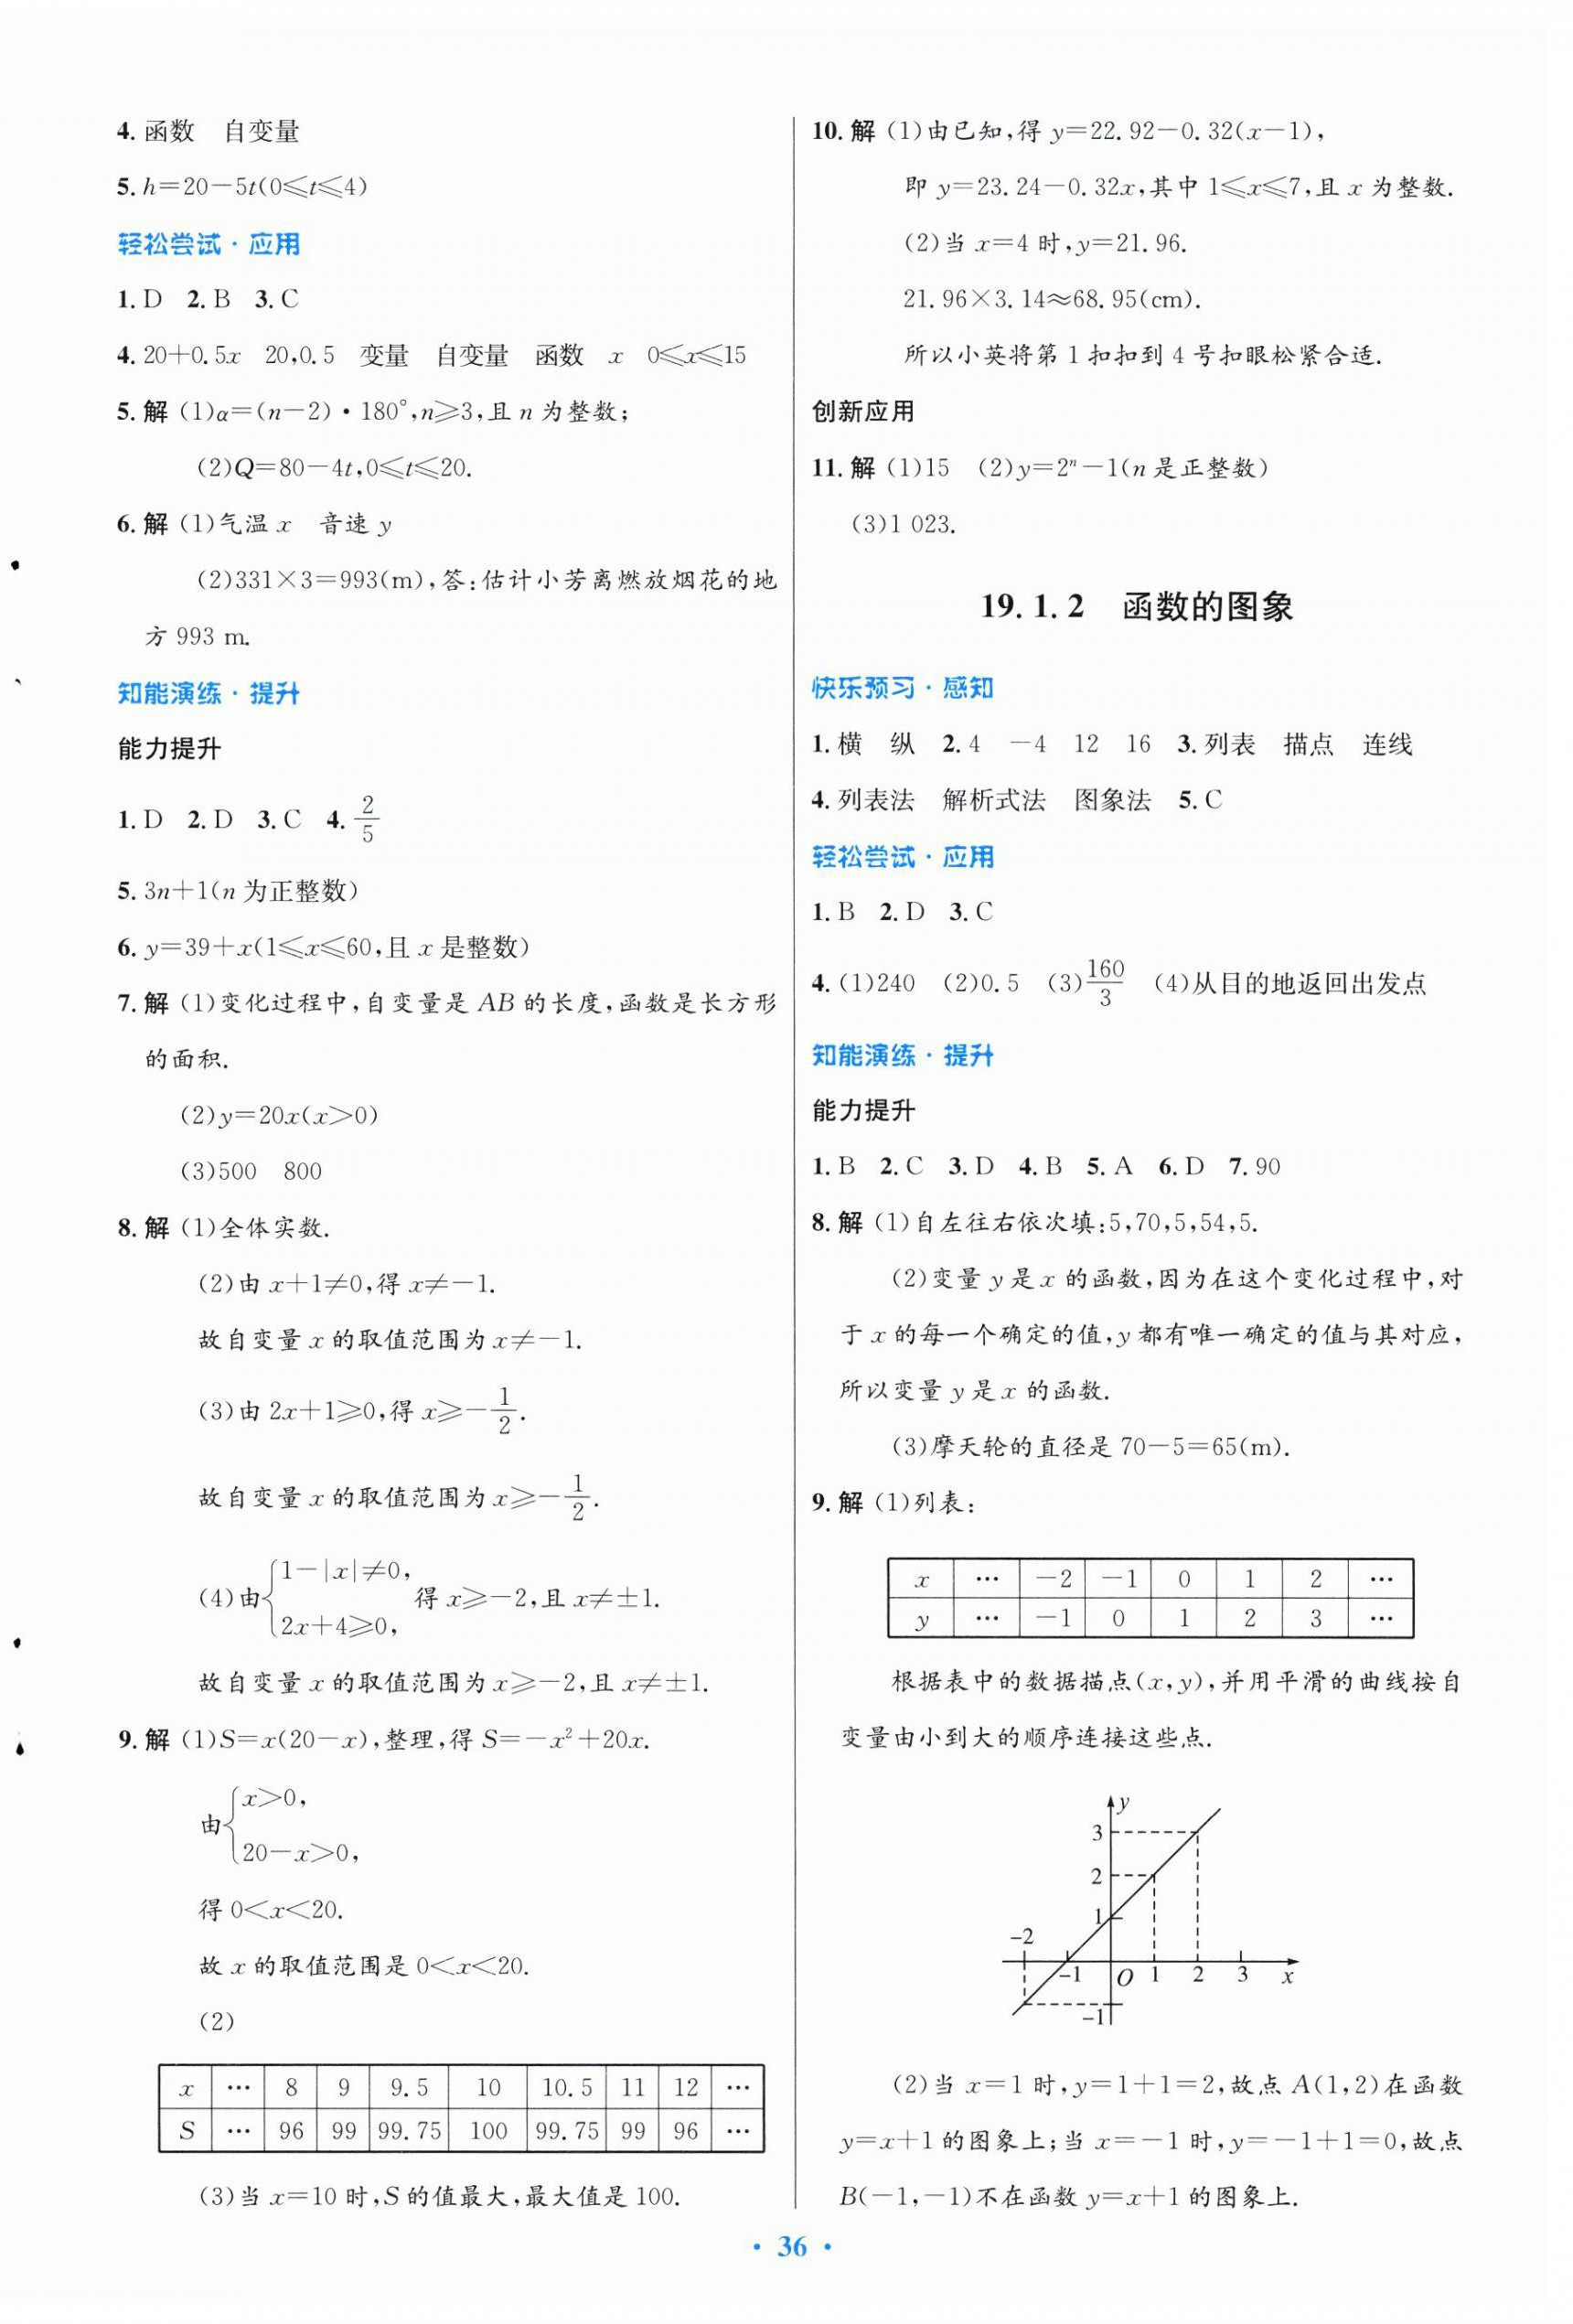 4. 函数　自变量
5. h=20−5t(0⩽t⩽4)
轻松尝试·应用
1. D　2. B　3. C
4. 20+0.5x　20,0.5　变量　自变量　函数　x　0⩽x⩽15
5. 解 (1)α=(n−2)·180°,n⩾3,且 n 为整数;
(2)Q=80−4t,0⩽t⩽20.
6. 解 (1)气温 x　音速 y
(2)331×3=993(m),答:估计小芳离燃放烟花的地
方 993 m.
知能演练·提升
能力提升
1. D　2. D　3. C　4. 2/5
5. 3n+1(n 为正整数)
6. y=39+x(1⩽x⩽60,且 x 是整数)
7. 解 (1)变化过程中,自变量是 AB 的长度,函数是长方形
的面积.
(2)y=20x(x>0)
(3)500　800
8. 解 (1)全体实数.
(2)由 x+1≠0,得 x≠−1.
故自变量 x 的取值范围为 x≠−1.
(3)由 2x+1⩾0,得 x⩾−1/2.
故自变量 x 的取值范围为 x⩾−1/2.
(4)由{1−|x|≠0, 2x+4⩾0, 得 x⩾−2,且 x≠±1.
故自变量 x 的取值范围为 x⩾−2,且 x≠±1.
9. 解 (1)S=x(20−x),整理,得 S=−x²+20x.
由{x>0,
20−x>0,
得 0<x<20.
故 x 的取值范围是 0<x<20.
(2)
x … 8 9 9.5 10 10.5 11 12 …
S … 96 99 99.75 100 99.75 99 96 …
(3)当 x=10 时,S 的值最大,最大值是 100.
10. 解 (1)由已知,得 y=22.92−0.32(x−1),
即 y=23.24−0.32x,其中 1⩽x⩽7,且 x 为整数.
(2)当 x=4 时,y=21.96.
21.96×3.14≈68.95(cm).
所以小英将第 1 扣扣到 4 号扣眼松紧合适.
创新应用
11. 解 (1)15　(2)y=2ⁿ−1(n 是正整数)
(3)1 023.
19.1.2　函数的图象
快乐预习·感知
1. 横　纵　2. 4　−4　12　16　3. 列表　描点　连线
4. 列表法　解析式法　图象法　5. C
轻松尝试·应用
1. B　2. D　3. C
4. (1)240　(2)0.5　(3)160/3　(4)从目的地返回出发点
知能演练·提升
能力提升
1. B　2. C　3. D　4. B　5. A　6. D　7. 90
8. 解 (1)自左往右依次填:5,70,5,54,5.
(2)变量 y 是 x 的函数,因为在这个变化过程中,对
于 x 的每一个确定的值,y 都有唯一确定的值与其对应,
所以变量 y 是 x 的函数.
(3)摩天轮的直径是 70−5=65(m).
9. 解 (1)列表:
x … −2 −1 0 1 2 …
y … −1 0 1 2 3 …
根据表中的数据描点(x,y),并用平滑的曲线按自
变量由小到大的顺序连接这些点.
y
3
2
1
−2
−1 O 1 2 3 x
−1
(2)当 x=1 时,y=1+1=2,故点 A(1,2)在函数
y=x+1 的图象上;当 x=−1 时,y=−1+1=0,故点
B(−1,−1)不在函数 y=x+1 的图象上.
· 36 ·